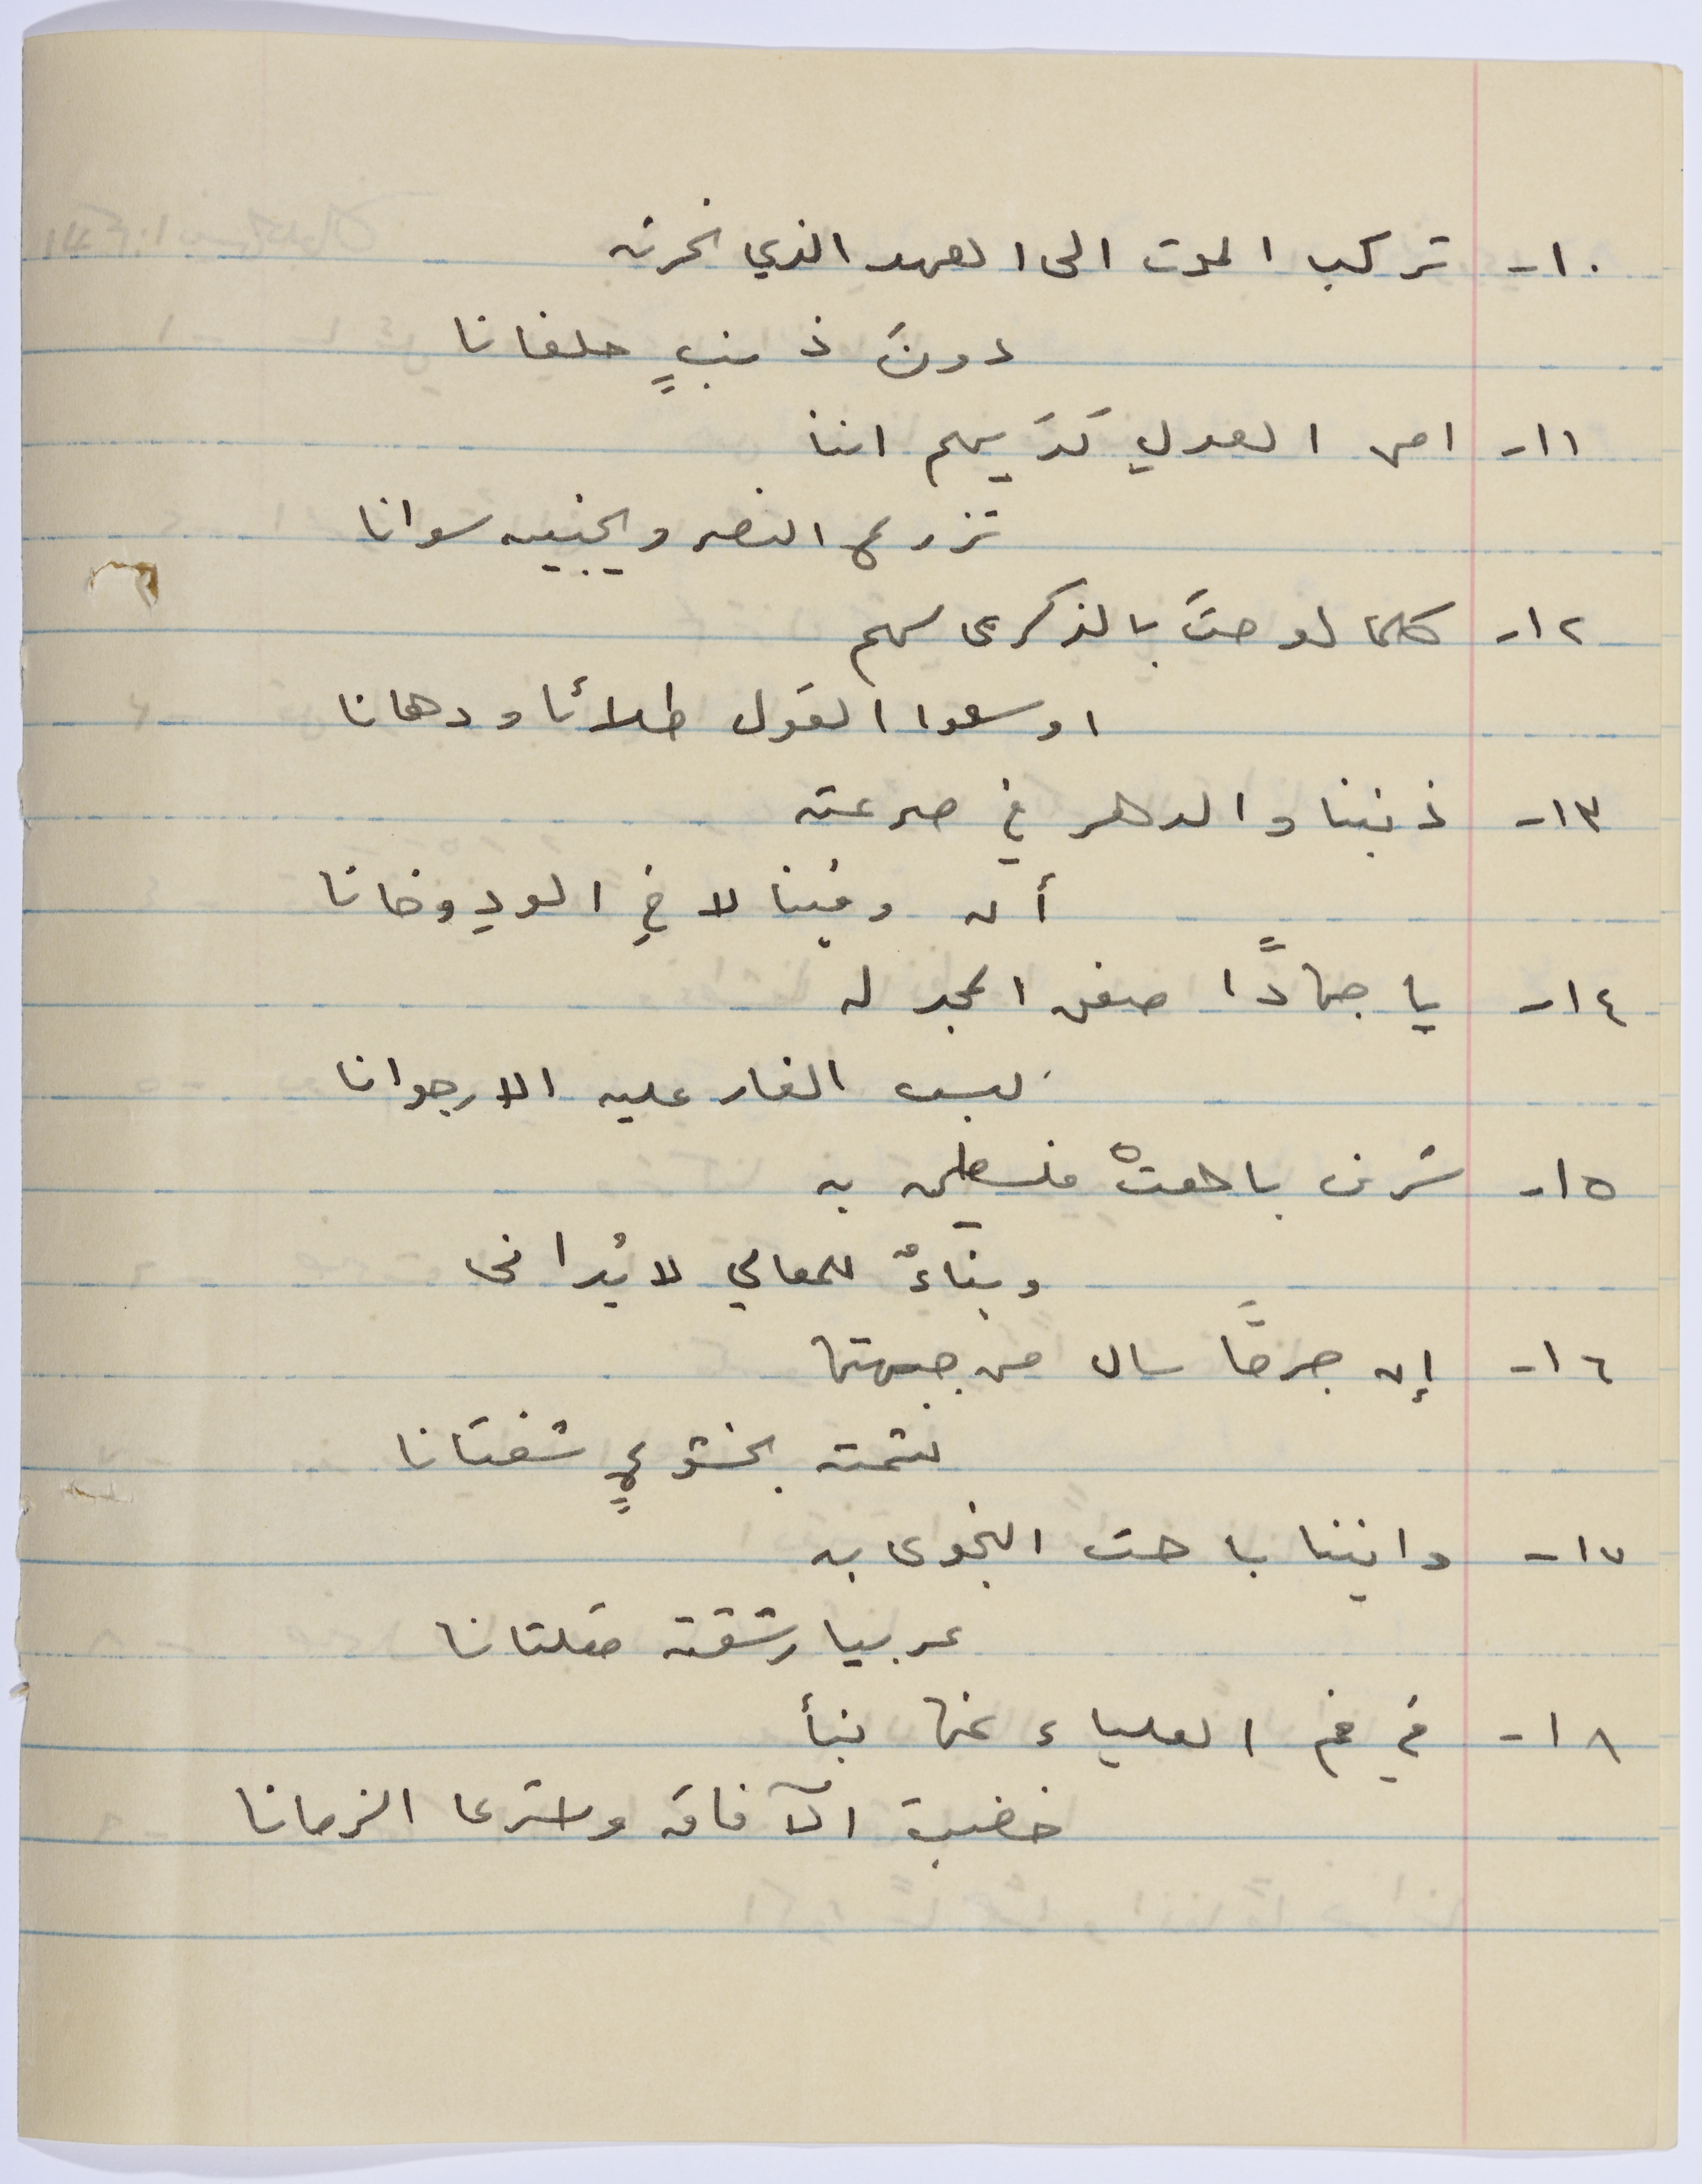 ١٠- تركب الموت الى العهد الذي نحرته
دونَ ذنبٍ حلفانا
١١- امن العدلِ لَدَيهم اننا
نزرع النصر ويجنيه سوانا
١٢- كلما لوحتَ بالذكرى لهم
اوسعوا القول طلائا ودهانا
١٣- ذنبنا والدهر في صرعته
أن وفينا لاخِ الودِ وخانا
١٤- يا جهادًا صفق المجد له
لبس الغار عليه الارجوانا
١٥- شرف باهتْ فلسطين به
وبناءٌ للمعالي لا يُدانى
١٦- إن جرحًا سال من جبهتها
لثمته بخشوعٍ شفتانا
١٧- وانيننا باحت النجوى به
عربيا رشفته مقلتانا
١٨- في فم العلياء عنها نبأ
خضبت الآفاق واسترعا الزمانا